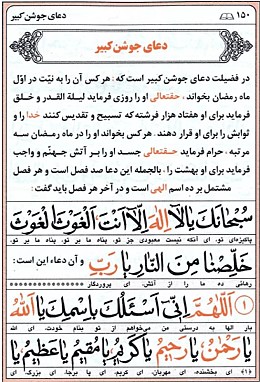 ۱۵۰ دعای جوشن کبیر
دعای جوشن کبیر
در فضیلت دعای جوشن کبیر است که : هر کس آن را به نیّت در اوّل
ماه رمضان بخواند ، حقتعالی او را روزی فرماید لیلة القدر و خلق
فرماید برای او هفتاد هزار فرشته که تسبیح و تقدیس کنند خدا را و
ثوابش را برای او قرار دهند. هر کس بخواند او را در ماه رمضان سه
مرتبه ، حرام فرماید حقتعالی جسد او را بر آتش جهنّم و واجب
فرماید برای او بهشت را ، بالجمله این دعا صد فصل است و هر فصل
مشتمل بر ده اسم الهی است و در آخر هر فصل باید گفت :
سُبْحانَکَ یا لا اِلهَ اِلّا اَنْتَ اَلْغَوْثَ اَلْغَوْثَ
پاکیزه‌ای تو، ای آنکه نیست معبودی جز تو، پناه ما بر تو، پناه ما بر تو،
خَلِّصْنا مِنَ النّارِ یا رَبِّ و آن دعاء این است :
رهائی ده ما را از آتش، ای پروردگار
۱ اَللّهُمَّ اِنّی اَسْئَلُکَ بِاسْمِکَ یا اَللّهُ
بار الها به درستی من می‌خواهم از تو بنام خودت، ای الله
یا رَحْمنُ یا رَحیمُ یا کَریمُ یا مُقیمُ یا عَظیمُ یا
(۱) ای بخشنده، ای مهربان، ای کریم، ای پا برجا، ای بزرگ، ای